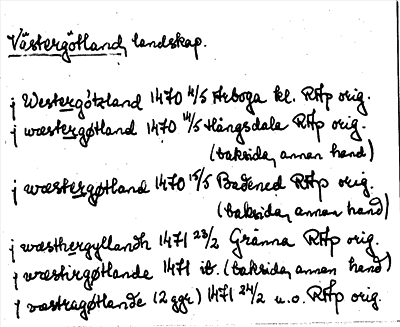 Västergötland, landskap.
j Westergötzland 1470 4/5 Arboga kl. RAp orig.
j wæstergøtland 1470 14/5 Hångsdala RAp orig.
(baksida, annan hand)
j wæstergøtland 1470 15/5 Badened RAp orig.
(baksida, annan hand)
j wæsthergyllandh 1471 23/2 Gränna RAp orig.
j wæstirgøtlande 1471 ib. (baksida, annan hand)
j vastragøtlande (2 ggr) 1471 24/2 u.o. RAp orig.